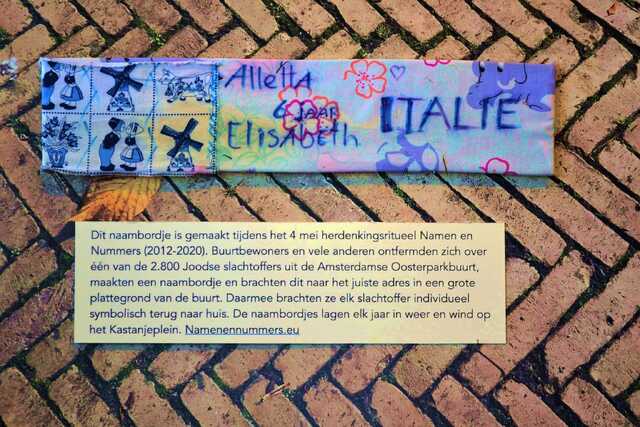 Alletta
6 jaar
Elisabeth
ITALIE
Dit naambordje is gemaakt tijdens het 4 mei herdenkingsritueel Namen en
Nummers (2012-2020). Buurtbewoners en vele anderen ontfermden zich over
één van de 2.800 Joodse slachtoffers uit de Amsterdamse Oosterparkbuurt,
maakten een naambordje en brachten dit naar het juiste adres in een grote
plattegrond van de buurt. Daarmee brachten ze elk slachtoffer individueel
symbolisch terug naar huis. De naambordjes lagen elk jaar in weer en wind op
het Kastanjeplein. Namenennummers.eu